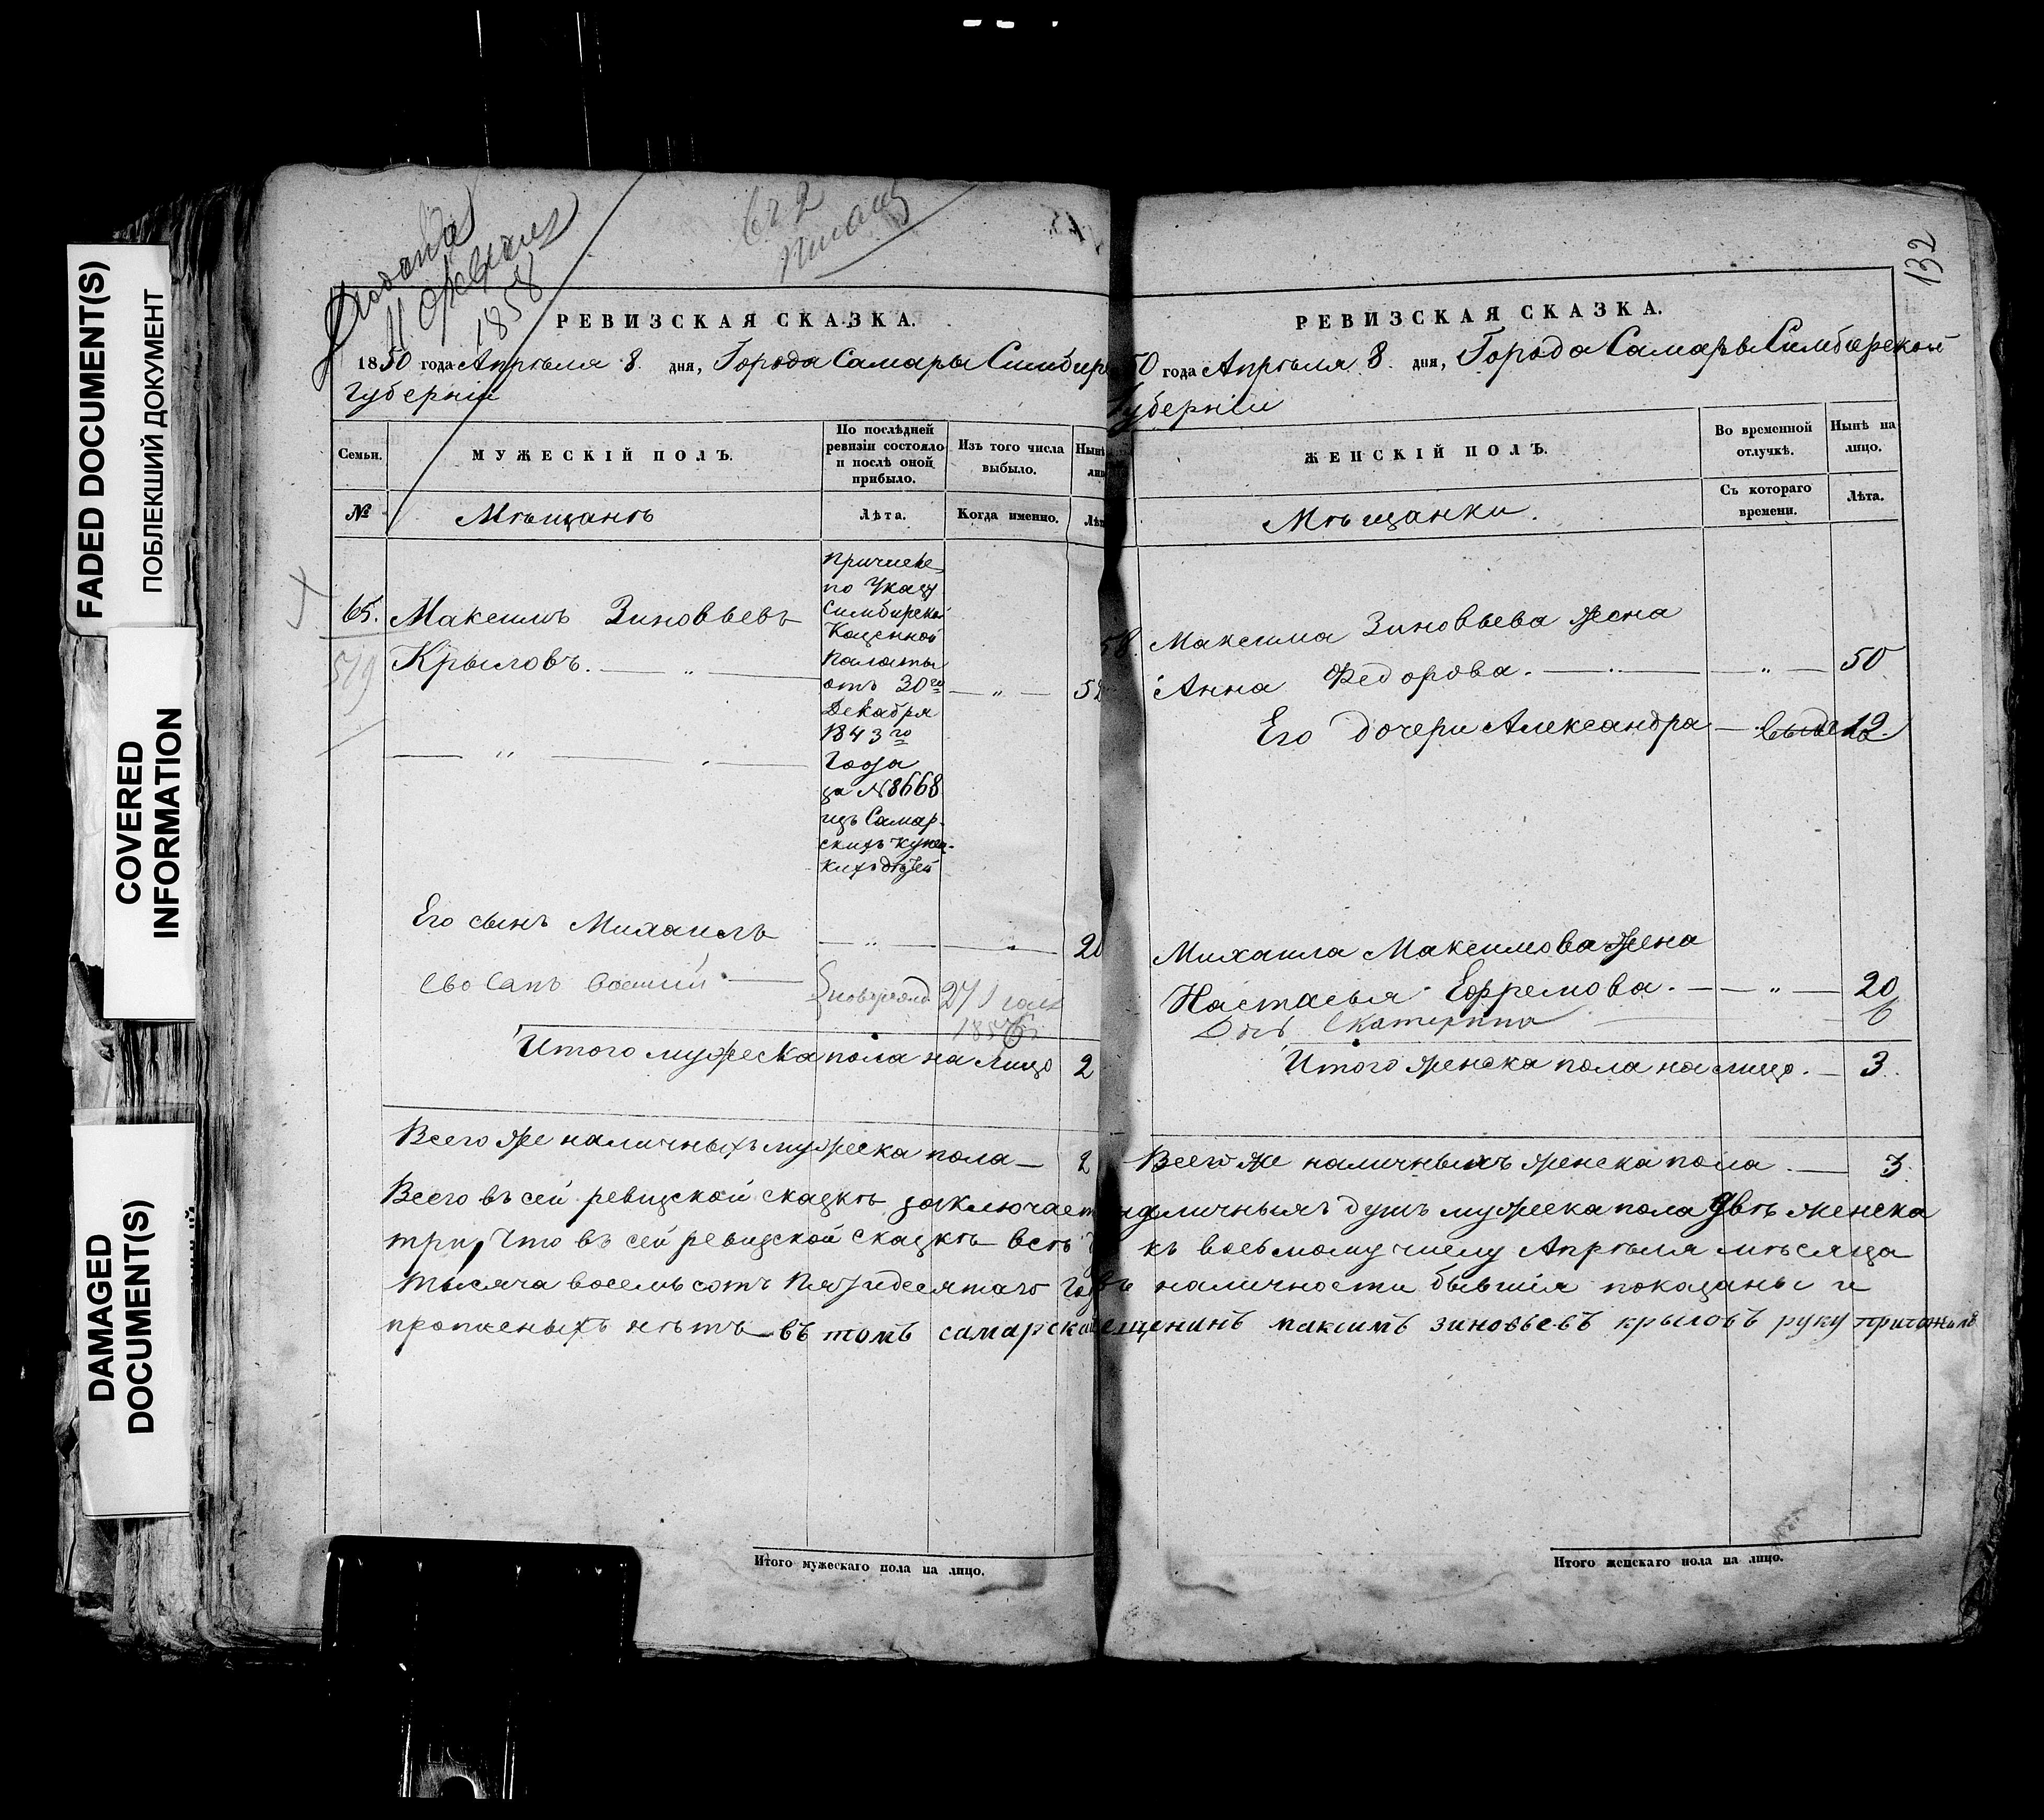 FADED DOCUMENT(S)
ПОБЛЕКШИЙ ДОКУМЕНТ
COVERED
INFORMATION
DAMAGED
DOCUMENT(S)
Подана
11 Февраля
1858
672
РЕВИЗСКАЯ СКАЗКА.
1850 года Апрѣля 8. дня, Города Самары Симбирс
Губерніи
Семьи.
МУЖЕСКІЙ ПОЛЪ.
По послѣдней
ревизіи состояло
и послѣ оной
прибыло.
Изъ того числа
выбыло.
Нынѣ
лиц
№
Мѣщанѣ
Лѣта.
Когда именно.
Лѣт
65.
519
Максимъ Зиновьевъ
Крыловъ.
Причисле
по Указу
Симбирской
Казенной
Палаты
отъ 30го
Декабря
1843го
Года
за №8668
изъ Самар-
скихъ купец-
кихъ дѣтей
52
Его сынъ Михаилъ
20
Его Сынъ Василій
Новорожд
27
1856
Итого мужеска пола на лицо 2
Всего же наличныхъ мужеска пола 2
Всего въ сей ревизской сказкѣ заключает
три, Что въ сей ревизской сказкѣ всѣ
тысяча восемь сотъ Пятидесятаго Год
пропис­ныхъ нѣтъ въ томъ самарскай
Итого мужескаго пола на лицо.
132
РЕВИЗСКАЯ СКАЗКА.
50 года Апрѣля 8. дня, Города Самары Симбирской
Губерніи
ЖЕНСКІЙ ПОЛЪ.
Во временной
отлучкѣ.
Нынѣ на
лицо.
Мѣщанки.
Съ котораго
времени.
Лѣта.
Максима Зиновьева жена
Анна Федорова. 50
Его дочери Александра 12
Михаила Максимова жена
Настасья Ефремова. 20
Дочь Екатерина 6
Итого женска пола на лицо. 3.
Всего же наличныхъ женска пола. 3.
наличныхъ душъ мужеска пола двѣ женска
къ восьмому числу Апрѣля мѣсяца
въ наличности бывшія показаны и
мещенинъ максимъ зиновьевъ крыловъ руку приложилъ
Итого женскаго пола на лицо.